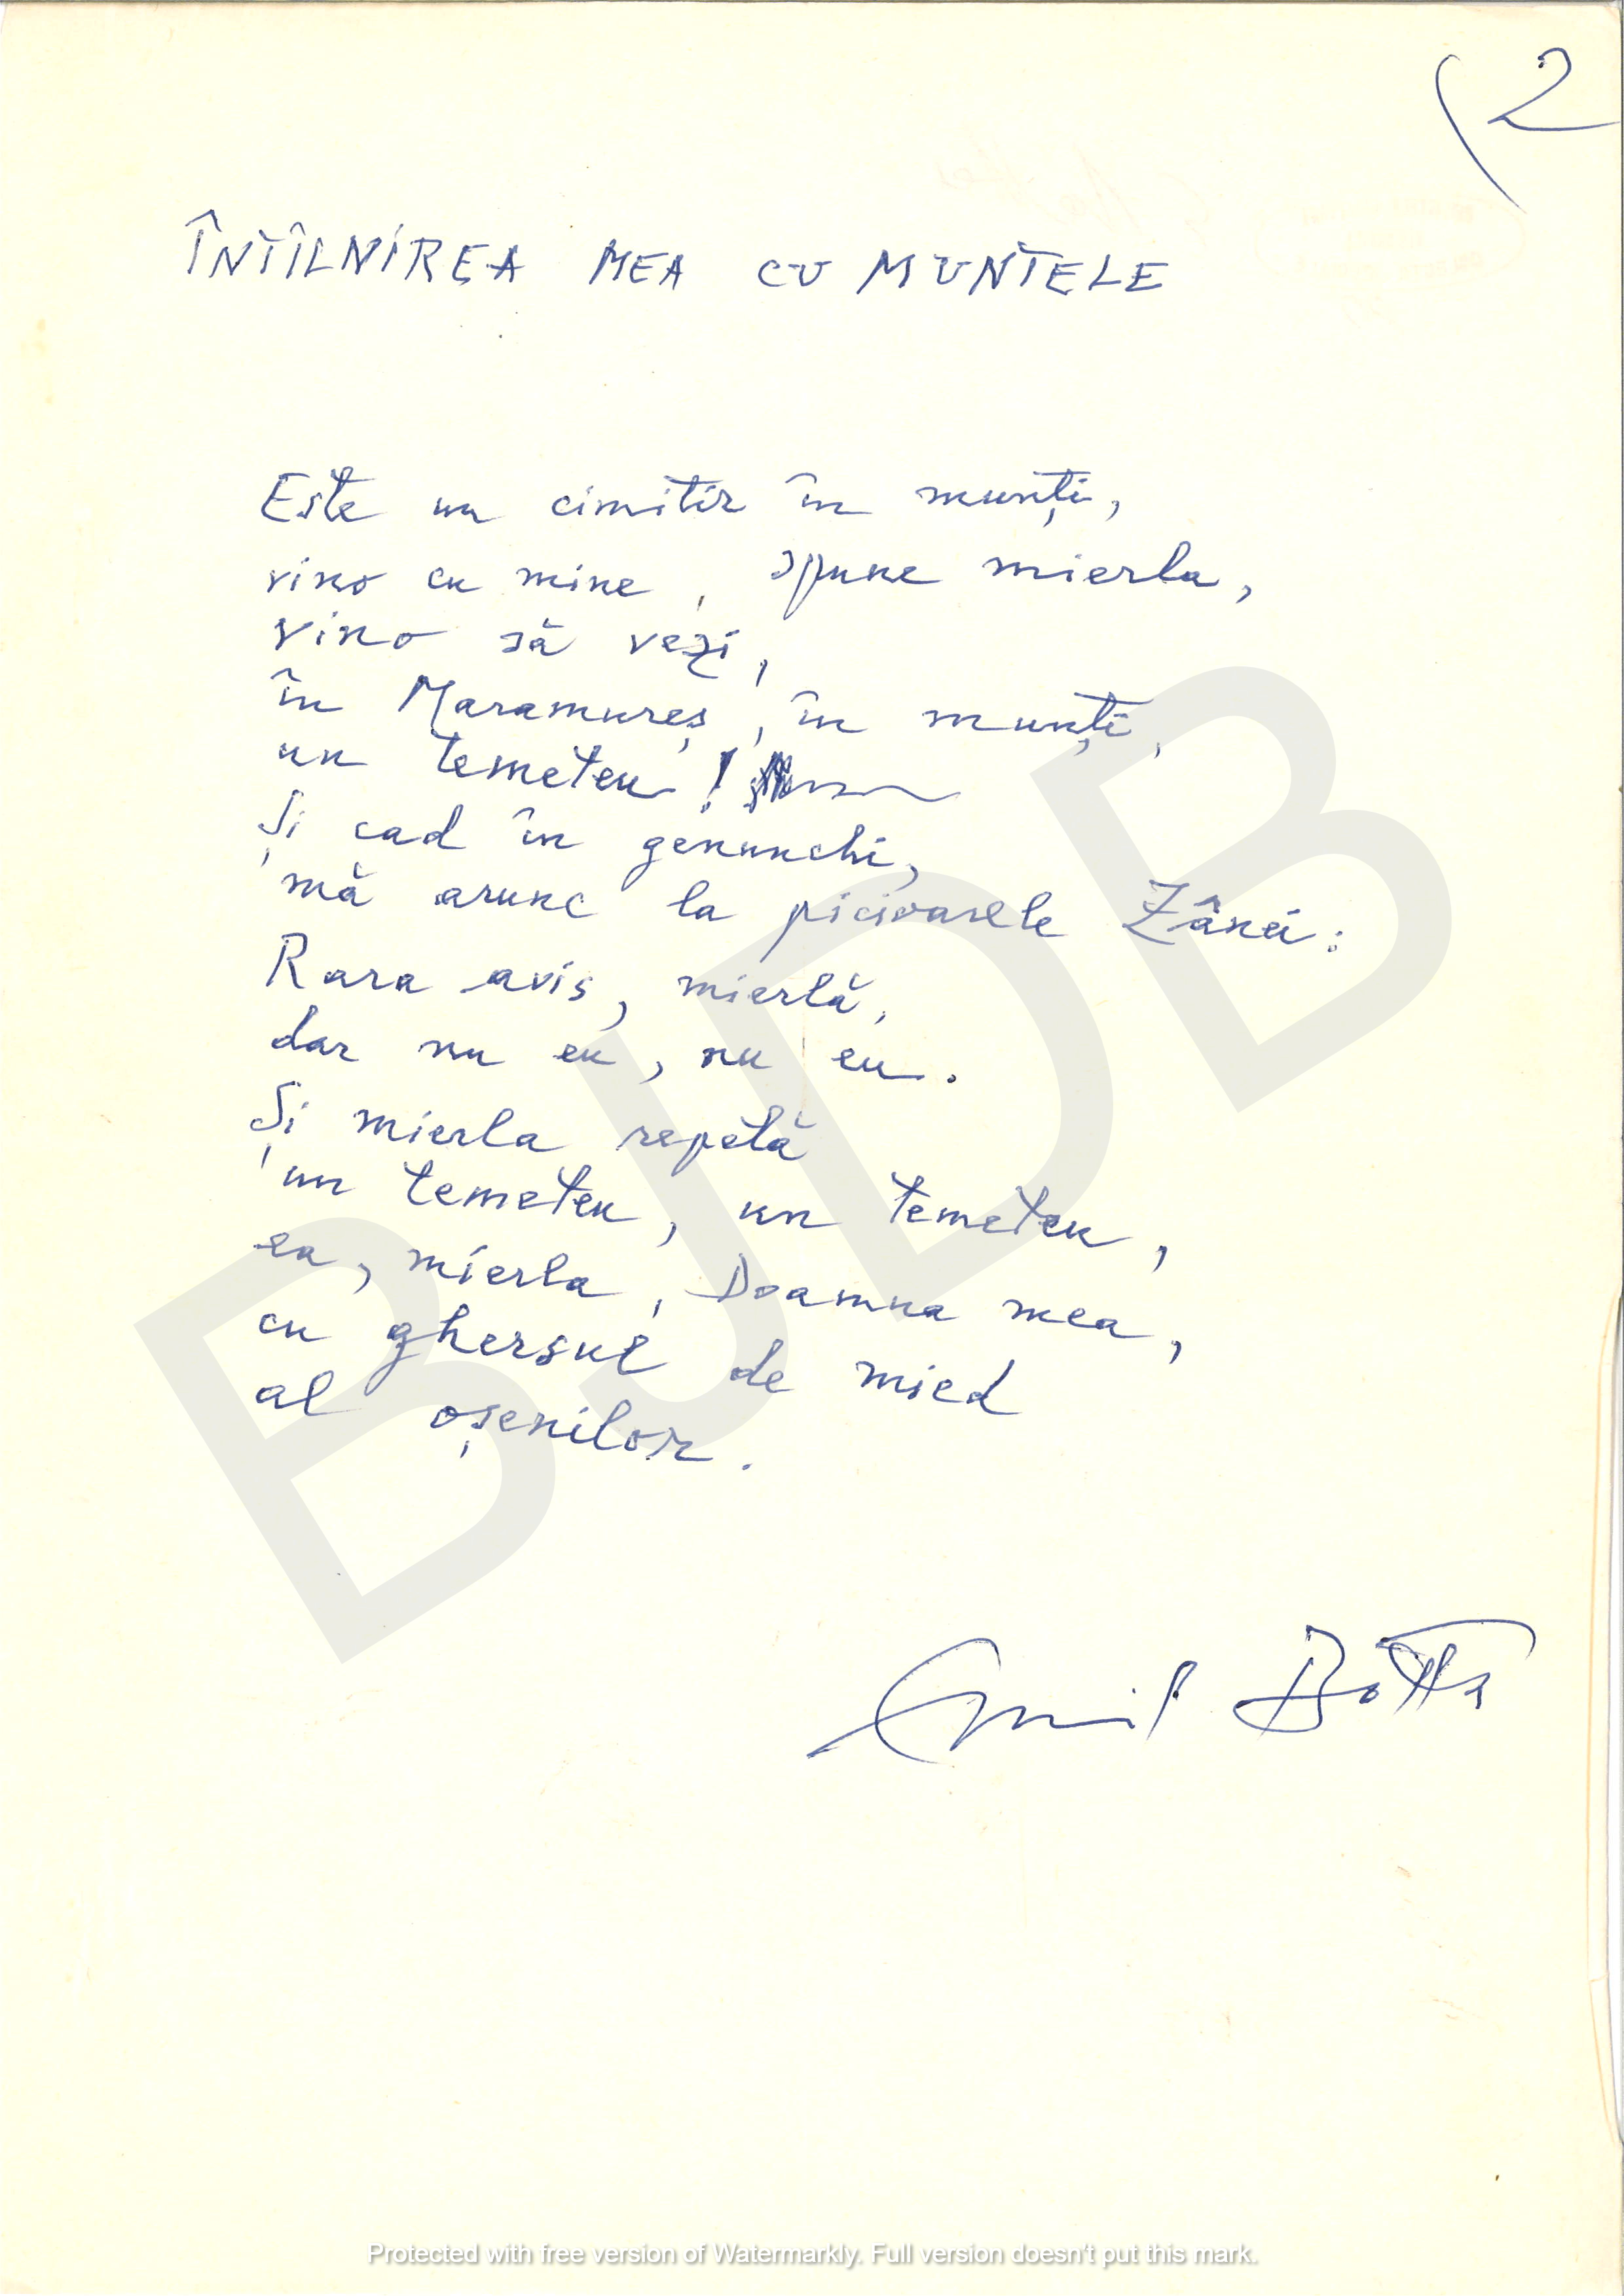 2
ÎNTÎLNIREA MEA CU MUNTELE
Este un cimitir în munți,
vino cu mine, spune mierla,
vino să vezi,
în Maramureș, în munți,
un temeteu!
Și cad în genunchi,
mă arunc la picioarele Zânei:
Rara avis, mierlă,
dar nu eu, nu eu.
Și mierla repetă
un temeteu, un temeteu,
ea, mierla, Doamna mea,
cu ghersul de mied
al oșenilor.
Emil Botta
BJDB
Protected with free version of Watermarkly. Full version doesn't put this mark.